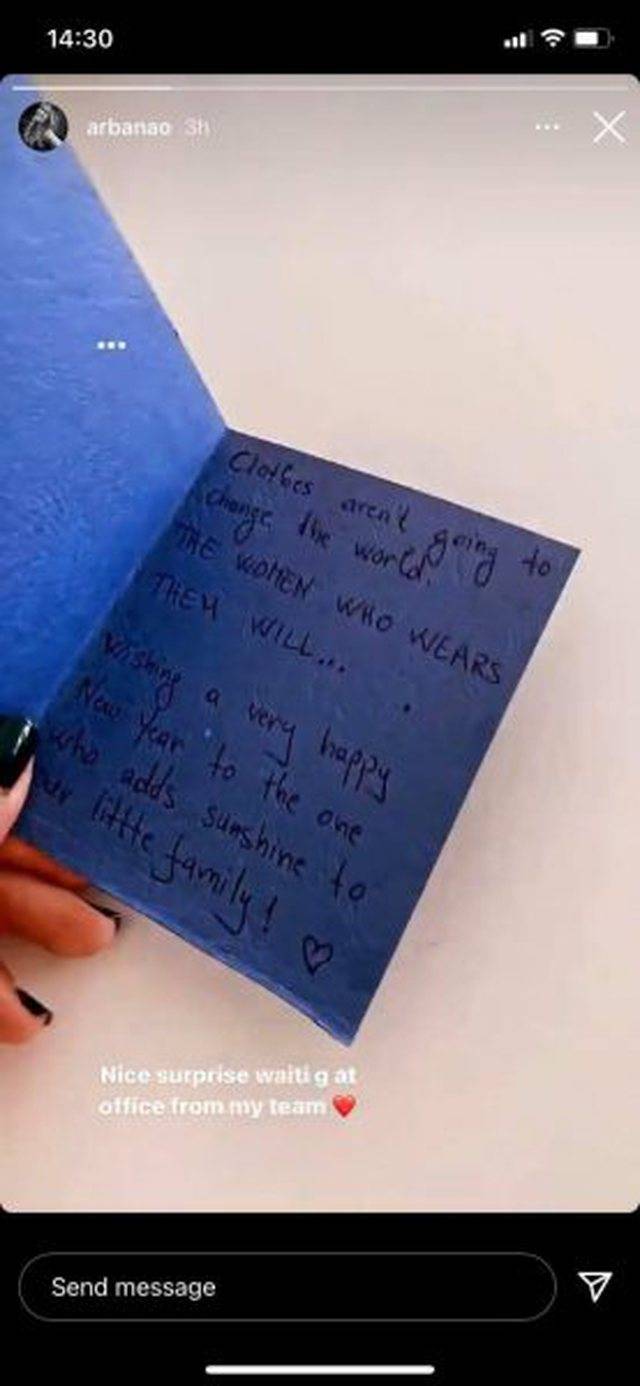 14:30
arbanao 3h
Clothes aren't going to
change the world.
THE WOMEN WHO WEARS
THEM WILL...
Wishing a very happy
New Year to the one
who adds sunshine to
our little family! ♡
Nice surprise waiti g at
office from my team ❤️
Send message